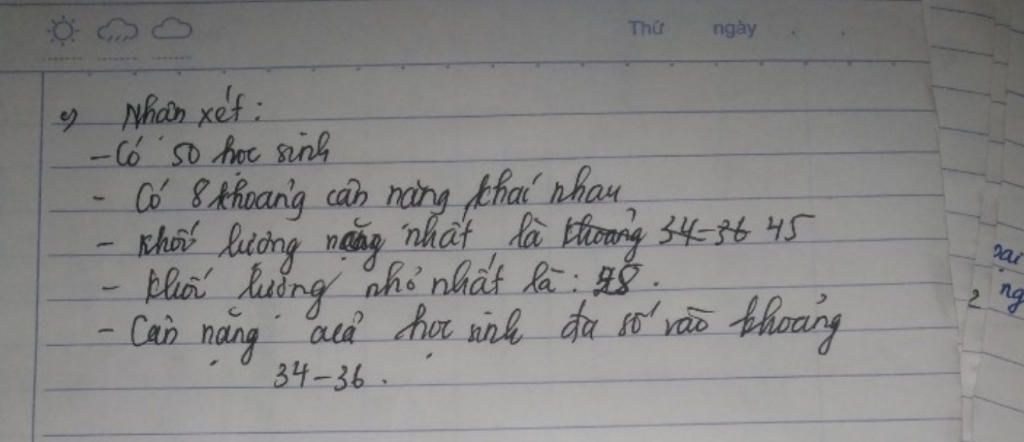 Thứ ngày
c) Nhân xét:
- Có 50 học sinh
- Có 8 khoảng cân nặng khai nhau
- Khối lượng nặng nhất là khoảng 34-36 45
- Khối lượng nhỏ nhất là: 28.
- Cân nặng của học sinh đa số vào khoảng
34-36.
2
ng